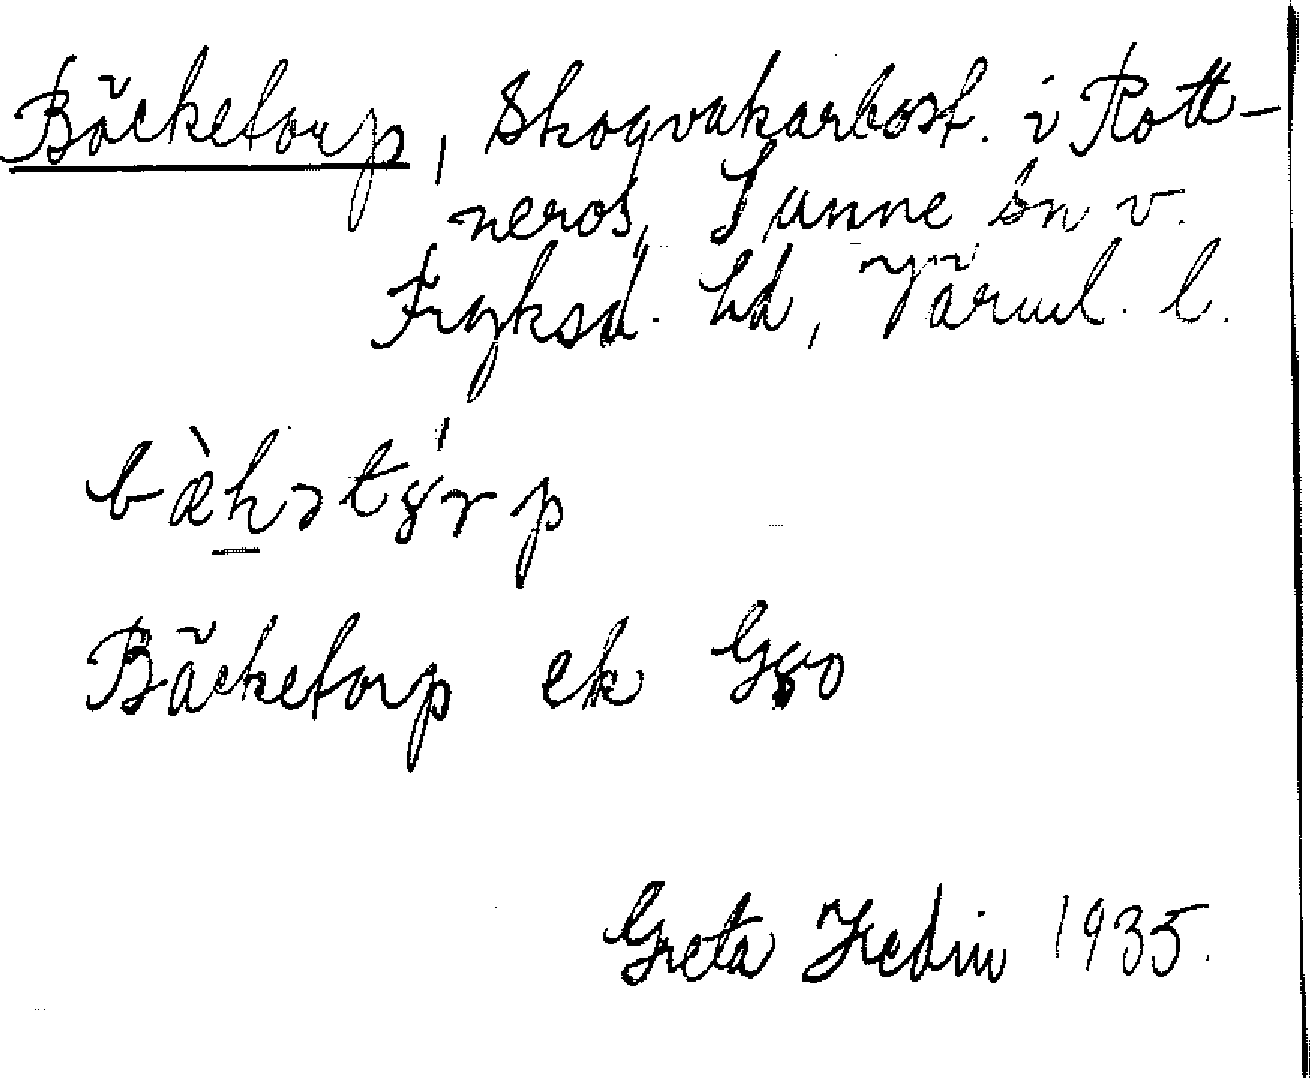 Bäcketorp, Skogvakarbost. i Rott-
neros, Sunne sn v.
Fryksd. hd, Värml. l.
Bäcketorp ek
Greta Hedin 1935.